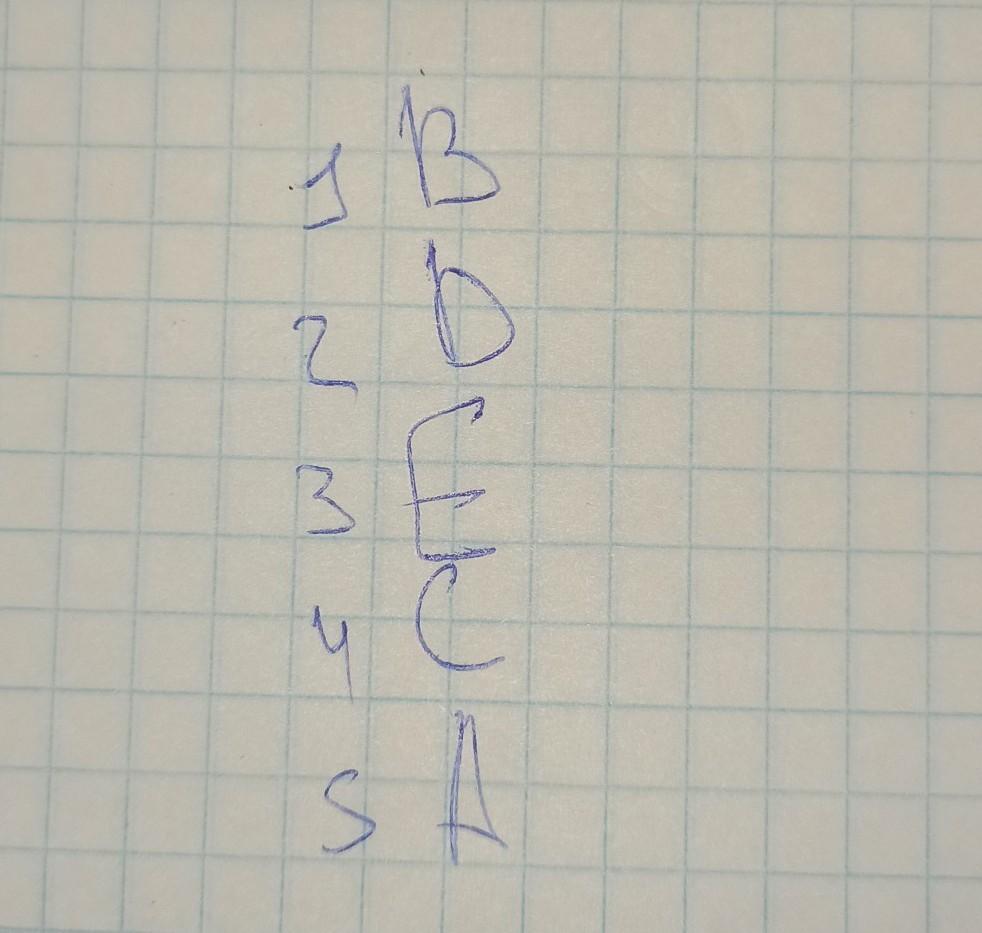 1 B
2 D
3 E
4 C
5 A